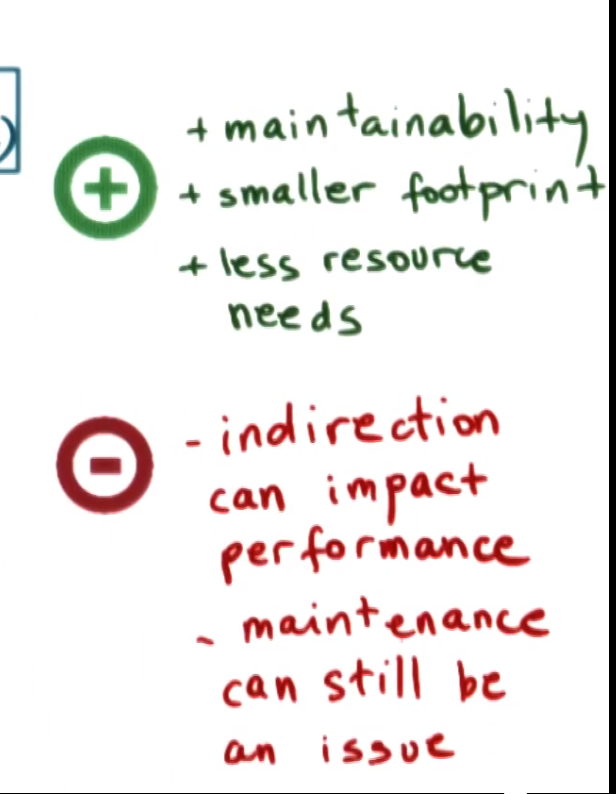 )
+ maintainability
+ smaller footprint
+ less resource
needs
- indirection
can impact
performance
- maintenance
can still be
an issue